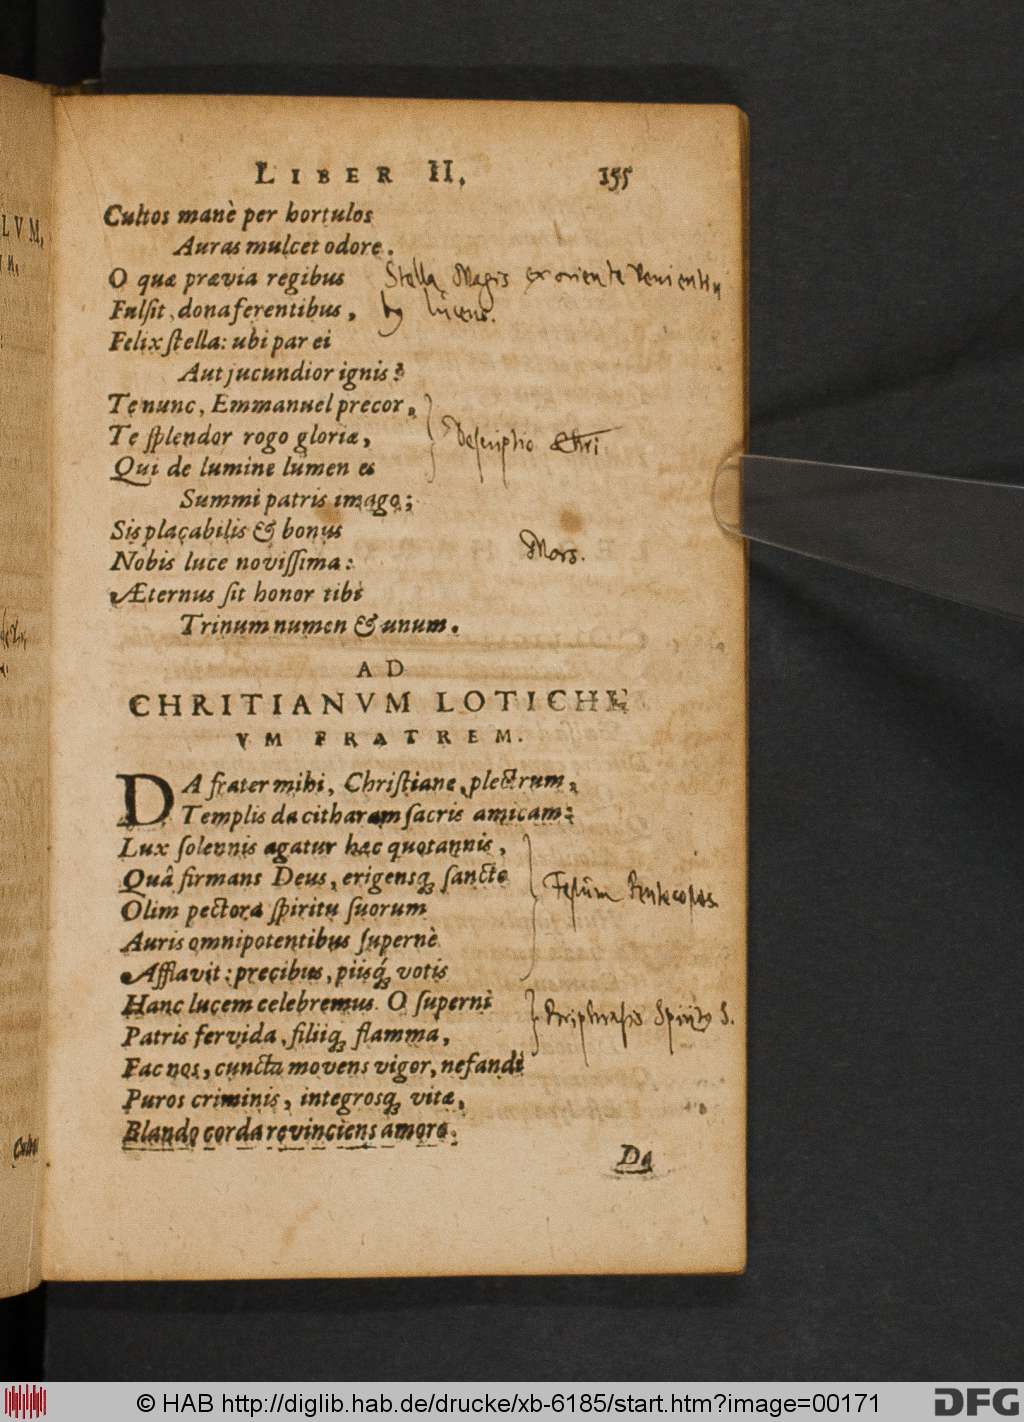 LIBER II. 155
Cultos manè per hortulos
Auras mulcet odore.
O quæ prævia regibus Stella Magis ex oriente venientiu
Fulsit, dona ferentibus, by lucens.
Felix stella: ubi par ei
Aut jucundior ignis?
Te nunc, Emmanuel precor,
Te splendor rogo gloriæ, Descriptio Chri
Qui de lumine lumen es
Summi patris imago;
Sis placabilis & bonus
Nobis luce novissima: Mors.
Æternus sit honor tibi
Trinum numen & unum.
AD
CHRITIANVM LOTICHE
VM FRATREM.
DA frater mihi, Christiane, plectrum,
Templis da citharam sacris amicam:
Lux solennis agatur hæc quotannis,
Quâ firmans Deus, erigensq; sancto Festum Pentecostes
Olim pectora spiritu suorum
Auris omnipotentibus supernè
Afflavit: precibus, piisq́; votis
Hanc lucem celebremus. O superni Periphrasis Spiritus S.
Patris fervida, filiiq; flamma,
Fac nos, cuncta movens vigor, nefandi
Puros criminis, integrosq; vitæ,
Blando corda revinciens amore.
Da
LVM,
Culto
© HAB http://diglib.hab.de/drucke/xb-6185/start.htm?image=00171
DFG